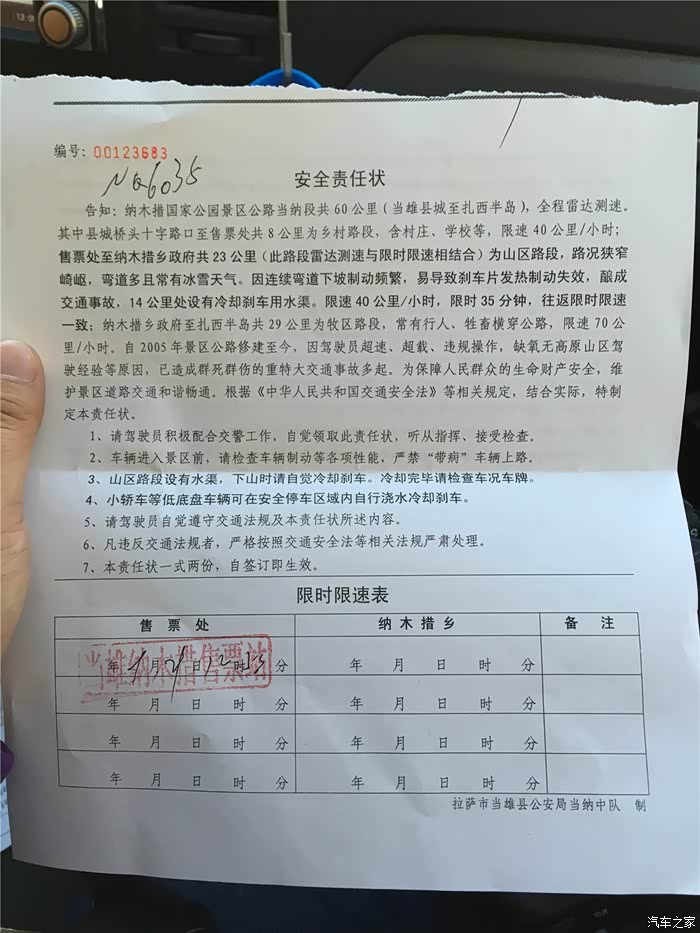 编号：00123683
NQ6035
安全责任状
告知：纳木措国家公园景区公路当纳段共60公里（当雄县城至扎西半岛），全程雷达测速。
其中县城桥头十字路口至售票处共8公里为乡村路段，含村庄、学校等，限速40公里/小时；
售票处至纳木措乡政府共23公里（此路段雷达测速与限时限速相结合）为山区路段，路况狭窄
崎岖，弯道多且常有冰雪天气。因连续弯道下坡制动频繁，易导致刹车片发热制动失效，酿成
交通事故，14公里处设有冷却刹车用水渠。限速40公里/小时，限时35分钟，往返限时限速
一致；纳木措乡政府至扎西半岛共29公里为牧区路段，常有行人、牲畜横穿公路，限速70公
里/小时。自2005年景区公路修建至今，因驾驶员超速、超载、违规操作，缺氧无高原山区驾
驶经验等原因，已造成群死群伤的重特大交通事故多起。为保障人民群众的生命财产安全，维
护景区道路交通和谐畅通。根据《中华人民共和国交通安全法》等相关规定，结合实际，特制
定本责任状。
1、请驾驶员积极配合交警工作，自觉领取此责任状，听从指挥、接受检查。
2、车辆进入景区前，请检查车辆制动等各项性能，严禁“带病”车辆上路。
3、山区路段设有水渠，下山时请自觉冷却刹车。冷却完毕请检查车况车牌。
4、小轿车等低底盘车辆可在安全停车区域内自行浇水冷却刹车。
5、请驾驶员自觉遵守交通法规及本责任状所述内容。
6、凡违反交通法规者，严格按照交通安全法等相关法规严肃处理。
7、本责任状一式两份，自签订即生效。
限时限速表
售票处 纳木措乡 备注
年 月 日 12时 分 年 月 日 时 分
当雄纳木措售票站
年 月 日 时 分 年 月 日 时 分
年 月 日 时 分 年 月 日 时 分
年 月 日 时 分 年 月 日 时 分
拉萨市当雄县公安局当纳中队 制
汽车之家